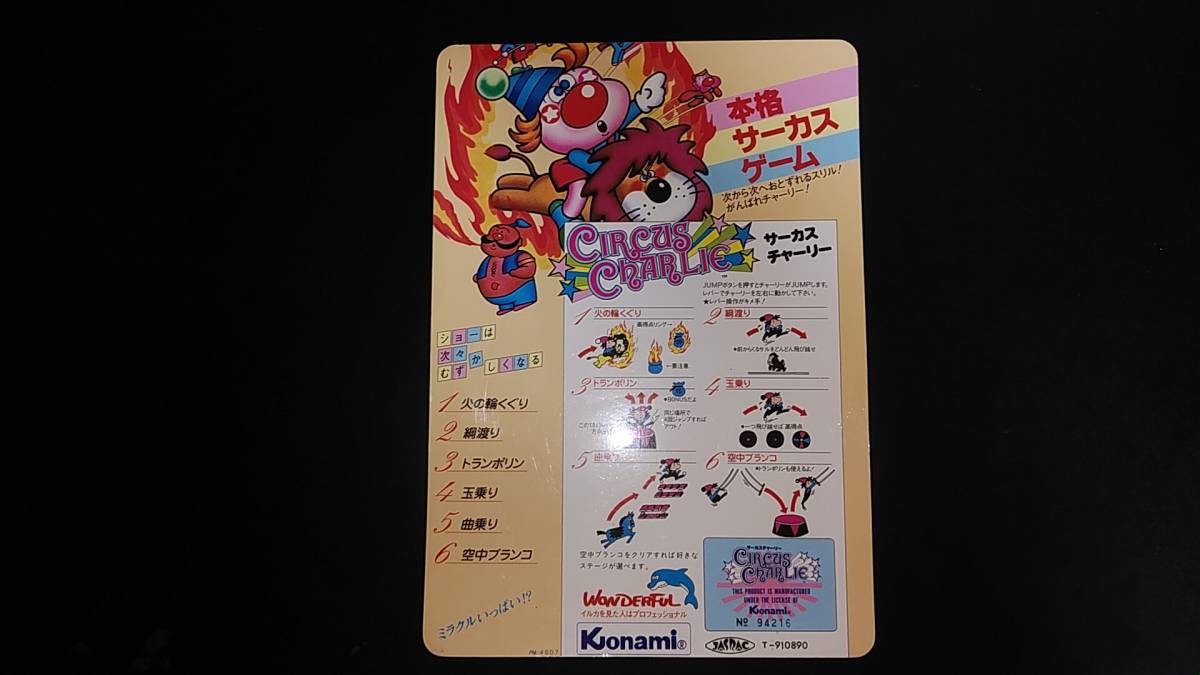 本格
サーカス
ゲーム
次から次へおとずれるスリル!
がんばれチャーリー!
CIRCUS
CHARLIE
サーカス
チャーリー
JUMPボタンを押すとチャーリーがJUMPします。
レバーでチャーリーを左右に動かして下さい。
★レバー操作がキメ手!
1 火の輪くぐり
高得点リング→
←要注意
2 綱渡り
●前からくるサルをどんどん飛び越せ
3 トランポリン
●BONUSだよ
同じ場所で
アウト!
4 玉乗り
●一つ飛び越せば 高得点
5 曲乗り
6 空中ブランコ
●トランポリンも使えるよ!
空中ブランコをクリアすれば好きな
ステージが選べます。
WONDERFUL
イルカを見た人はプロフェッショナル
Konami®
サーカスチャーリー
CIRCUS
CHARLIE
THIS PRODUCT IS MANUFACTURED
UNDER THE LICENSE OF
Konami
No 94216
JASRAC T-910890
ショーは
次々か
むずかしくなる
1 火の輪くぐり
2 綱渡り
3 トランポリン
4 玉乗り
5 曲乗り
6 空中ブランコ
ミラクルいっぱい!?
PM-4007